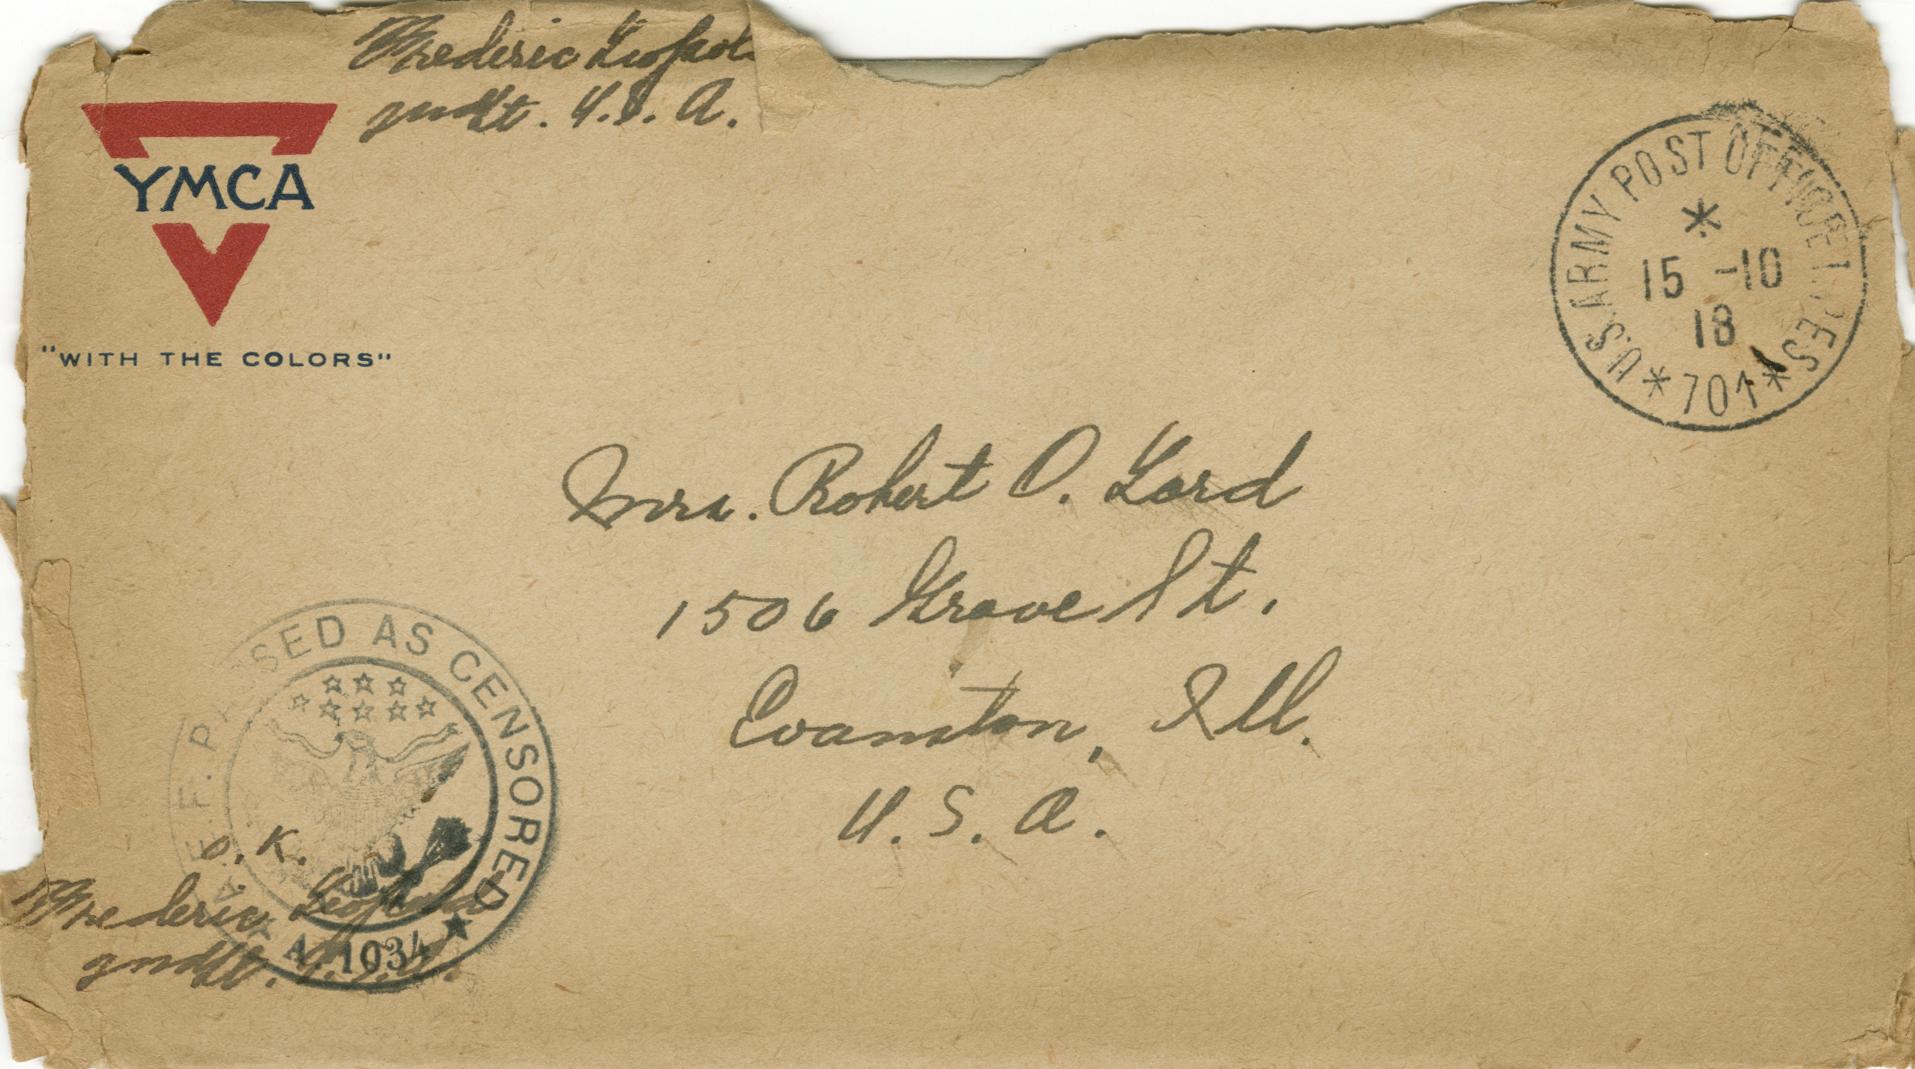 Frederic Leopold
2nd Lt. U.S.A.
YMCA
"WITH THE COLORS"
U.S. ARMY POST OFFICE M.P.E.S.
*
15 -10
18
* 701 *
Mrs. Robert O. Lord
1506 Grove St.
Evanston, Ill.
U.S.A.
A.E.F. PASSED AS CENSORED
A. 1934
O.K.
Frederic Leopold
2nd Lt. U.S.A.